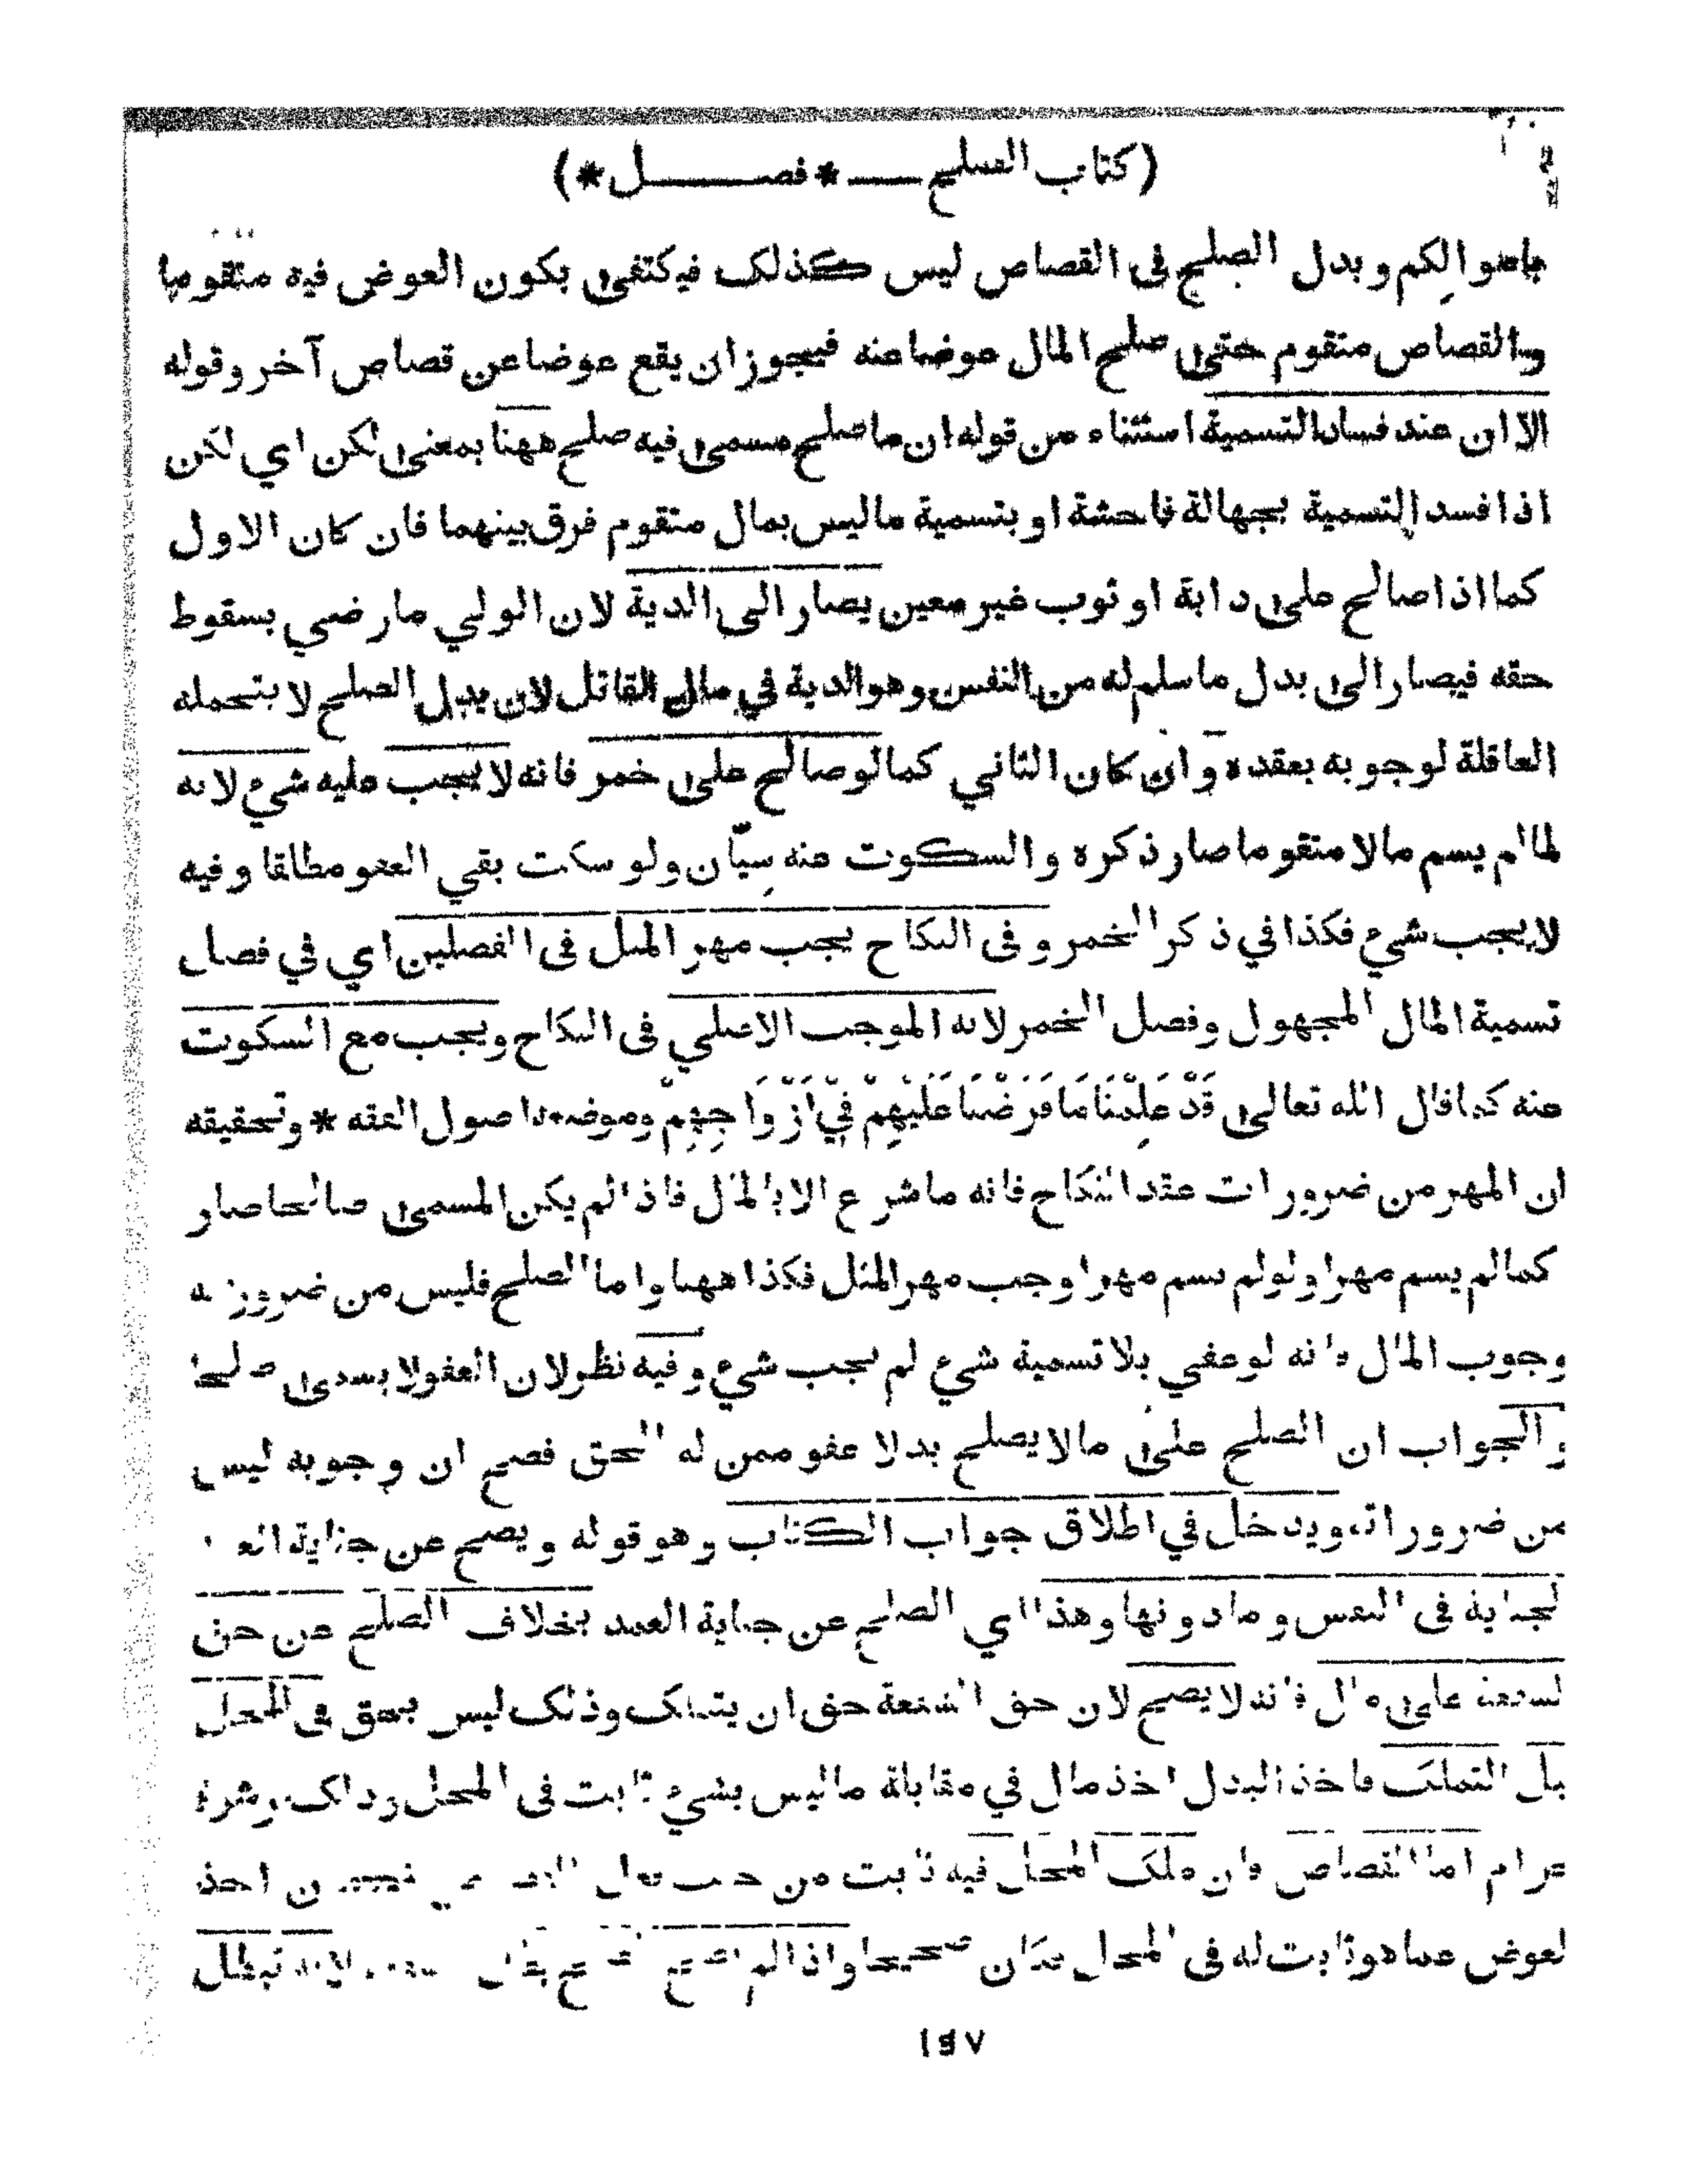 (كتاب الصلح — * فصل *)
باموالكم وبدل الصلح فى القصاص ليس كذلك فيكتفى بكون العوض فيه متقوما
والقصاص متقوم حتى صلح المال عوضا عنه فيجوز ان يقع عوضا عن قصاص آخر وقوله
الا ان عند فساد التسمية استثناء من قوله ان ما صلح مسمى فيه صلح ههنا بمعنى لكن اي لكن
اذا فسد التسمية بجهالة فاحشة او بتسمية ما ليس بمال متقوم فرق بينهما فان كان الاول
كما اذا صالح على دابة او ثوب غير معين يصار الى الدية لان الولي مارضي بسقوط
حقه فيصار الى بدل ما سلم له من النفس وهو الدية في مال القاتل لان بدل الصلح لا يتحمله
العاقلة لوجوبه بعقده وان كان الثاني كما لو صالح على خمر فانه لا يجب عليه شيء لانه
لما لم يسم مالا متقوما صار ذكره والسكوت عنه سيّان ولو سكت بقي العفو مطلقا وفيه
لا يجب شيء فكذا في ذكر الخمر وفى النكاح يجب مهر المثل فى الفصلين اي في فصل
تسمية المال المجهول وفصل الخمر لانه الموجب الاصلي فى النكاح ويجب مع السكوت
عنه كما قال الله تعالى قَدْ عَلِمْنَا مَا فَرَضْنَا عَلَيْهِمْ فِيْ اَزْوَاجِهِمْ وموضعه اصول الفقه * وتحقيقه
ان المهر من ضرورات عقد النكاح فانه ما شرع الا بالمال فاذا لم يكن المسمى صالحا صار
كما لم يسم مهرا ولو لم يسم مهرا وجب مهر المثل فكذا ههنا واما الصلح فليس من ضرورته
وجوب المال فانه لو عفي بلا تسمية شيء لم يجب شيء وفيه نظر لان العفو لا يسمى صلحا
والجواب ان الصلح على ما لا يصلح بدلا عفو ممن له الحق فصح ان وجوبه ليس
من ضروراته ويدخل في اطلاق جواب الكتاب وهو قوله ويصح عن جناية العمد
الجناية فى النفس وما دونها وهذا اي الصلح عن جناية العمد بخلاف الصلح عن حق
الشفعة على مال فانه لا يصح لان حق الشفعة حق ان يتملك وذلك ليس بحق فى المحل
قبل التملك فاخذ البدل اخذ مال في مقابلة ما ليس بشيء ثابت فى المحل وذلك رشوة
حرام اما القصاص فان ملك المحل فيه ثابت من حيث اخذ
العوض عما هو ثابت له فى المحل فكان صحيحا واذا لم يصح الصلح تبطل
١٤٧